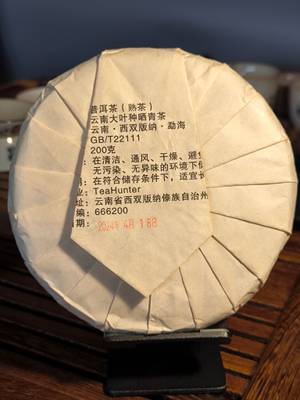 普洱茶（熟茶）
云南大叶种晒青茶
云南·西双版纳·勐海
GB/T22111
200克
：在清洁、通风、干燥、避
无污染、无异味的环境下
：在符合储存条件下，适宜
业：TeaHunter
址：云南省西双版纳傣族自治州
编：666200
日期：2024年 4月 18日